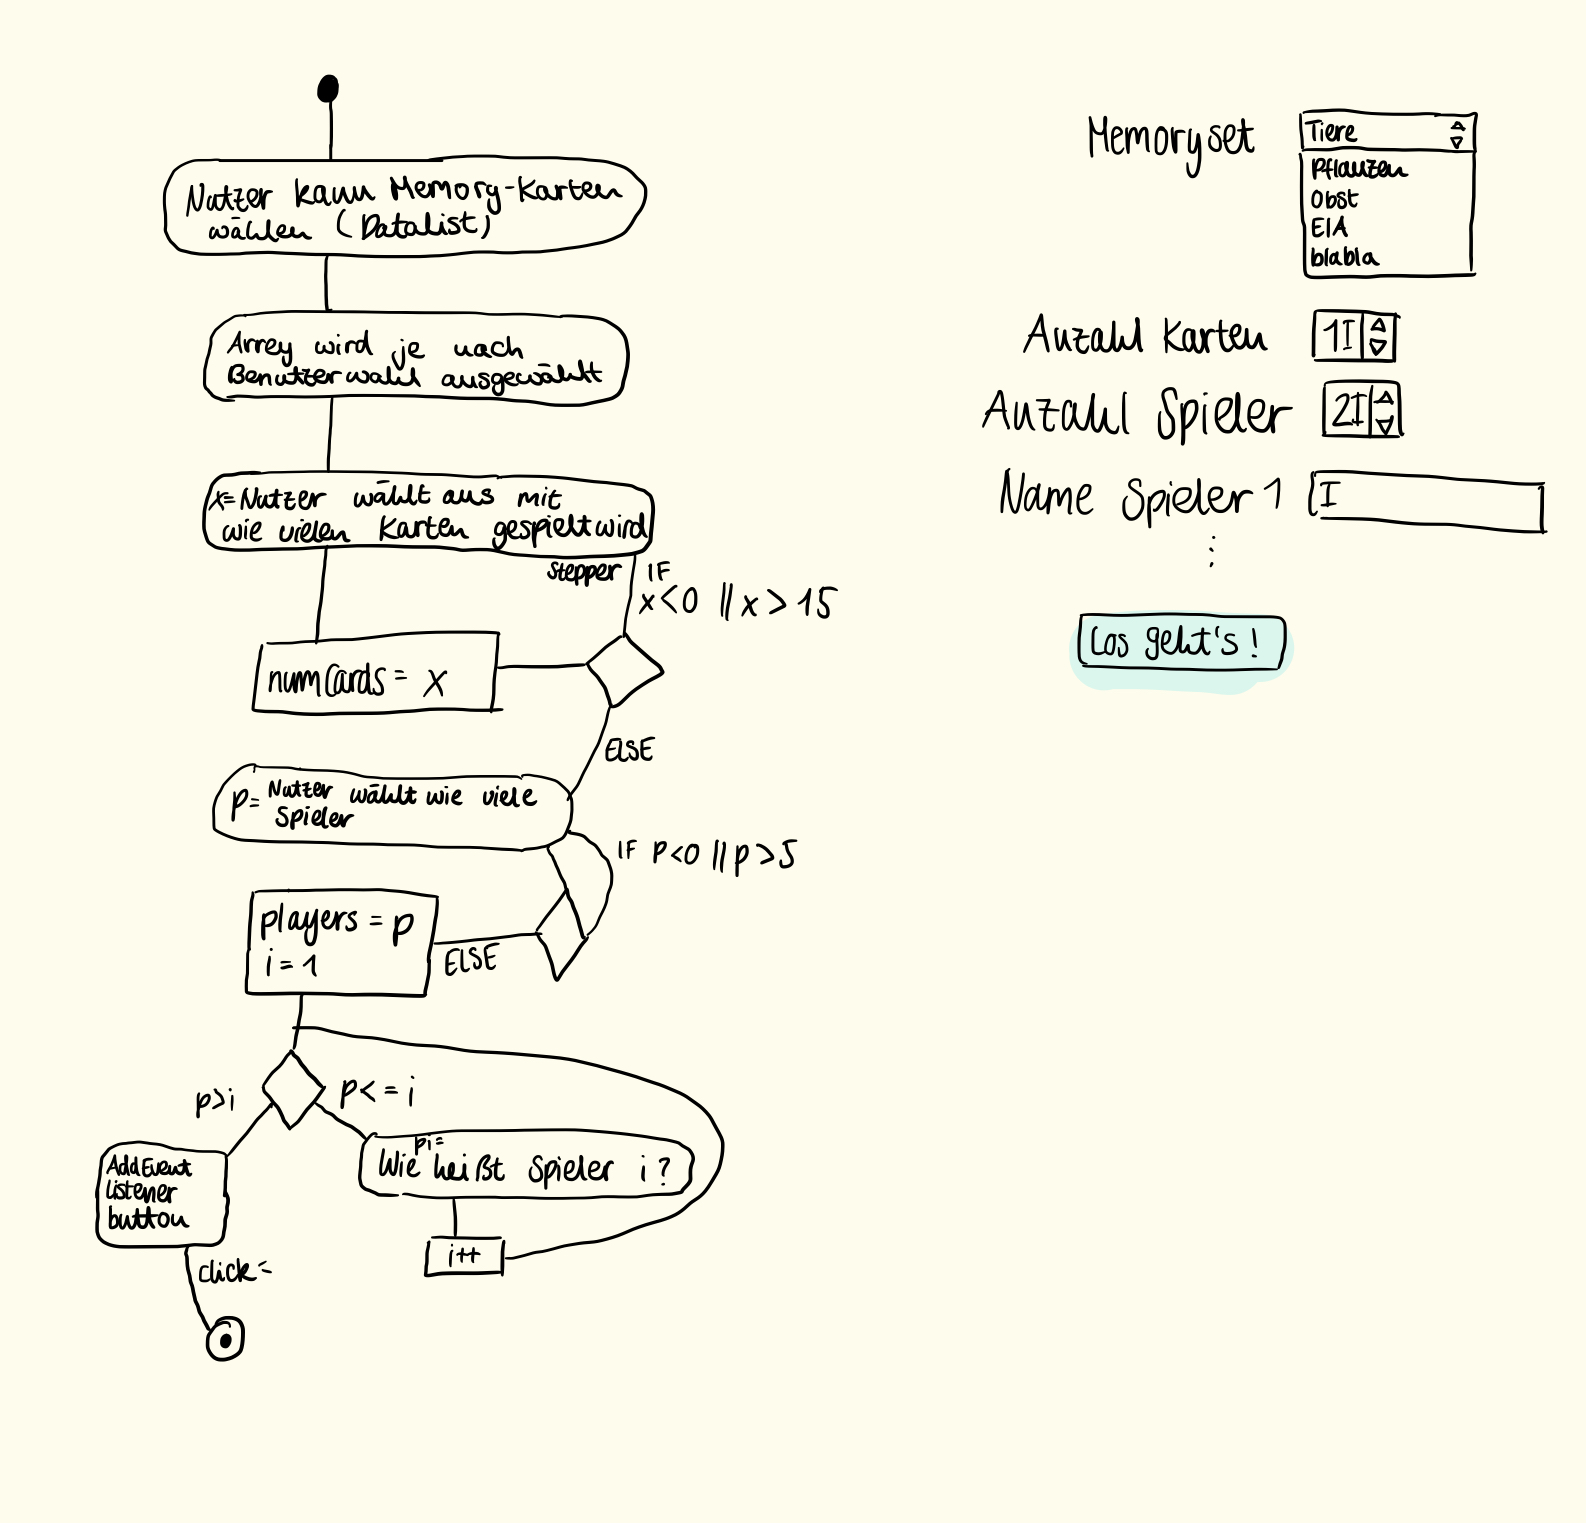 Nutzer kann Memory-Karten
wählen (Datalist)
Arrey wird je nach
Benutzerwahl ausgewählt
x=Nutzer wählt aus mit
wie vielen Karten gespielt wird
stepper
IF
x<0 || x>15
numCards = x
ELSE
p= Nutzer wählt wie viele
Spieler
IF p<0 || p>5
players = p
i=1
ELSE
p>i
p<=i
pi=
Wie heißt Spieler i?
AddEvent
listener
button
i++
click=
Memoryset
Tiere
Pflanzen
Obst
EIA
blabla
Anzahl Karten
1I
Anzahl Spieler
2I
Name Spieler 1
I
⋮
Los geht's!